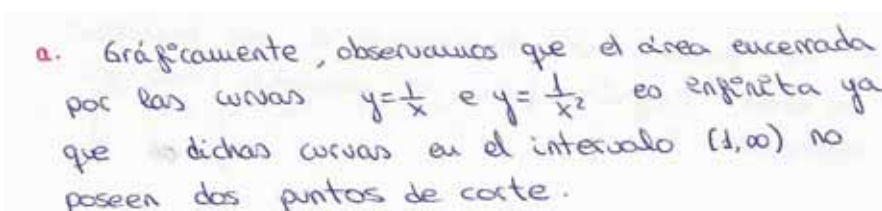 a. Gráficamente, observamos que el área encerrada
por las curvas y=1/x e y=1/x² es infinita ya
que dichas curvas en el intervalo (1,∞) no
poseen dos puntos de corte.